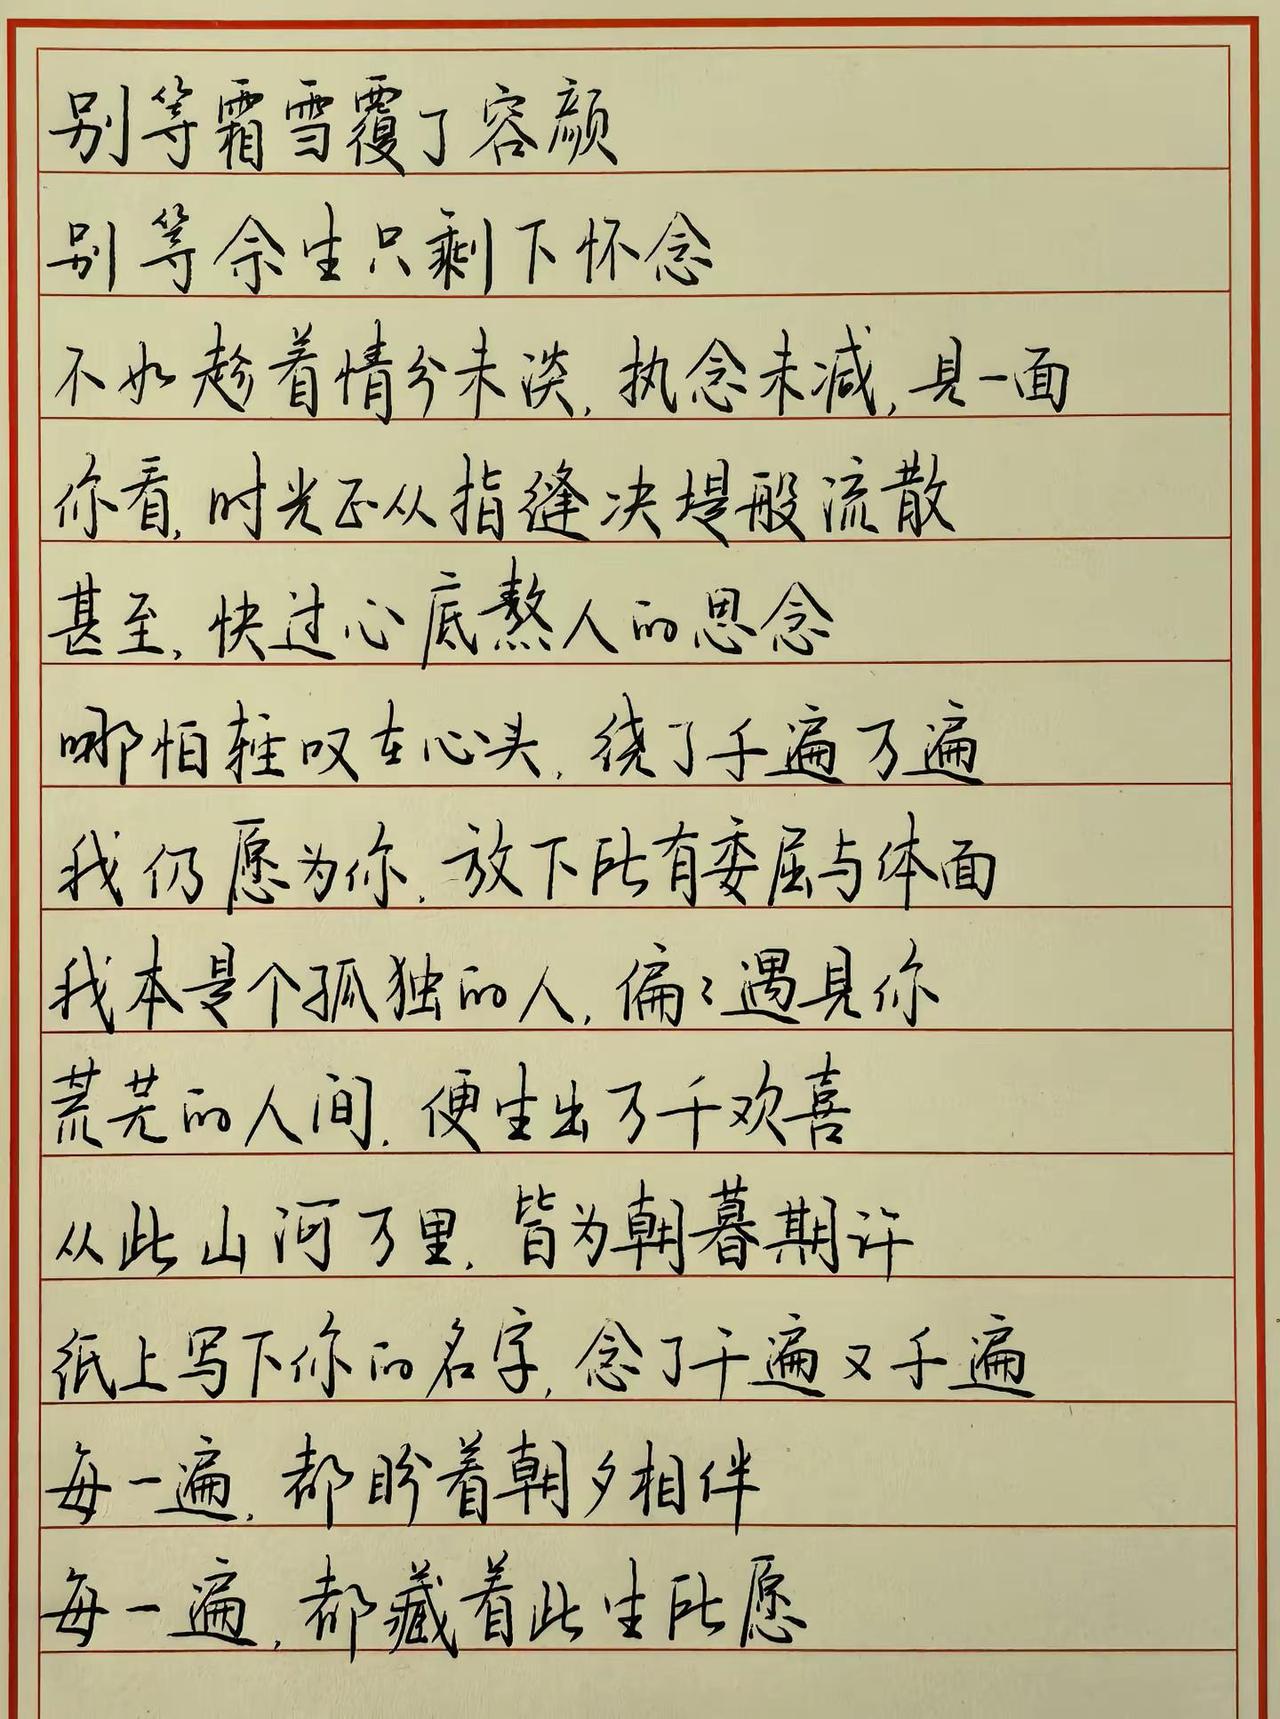 别等霜雪覆了容颜
别等余生只剩下怀念
不如趁着情分未淡,执念未减,见一面
你看,时光正从指缝决堤般流散
甚至,快过心底熬人的思念
哪怕嗟叹在心头,绕了千遍万遍
我仍愿为你,放下所有委屈与体面
我本是个孤独的人,偏々遇见你
荒芜的人间,便生出万千欢喜
从此山河万里,皆为朝暮期许
纸上写下你的名字,念了千遍又千遍
每一遍,都盼着朝夕相伴
每一遍,都藏着此生所愿